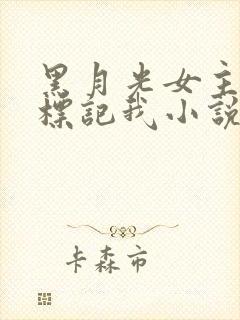 黑月光女主
標記我小說
卡森市